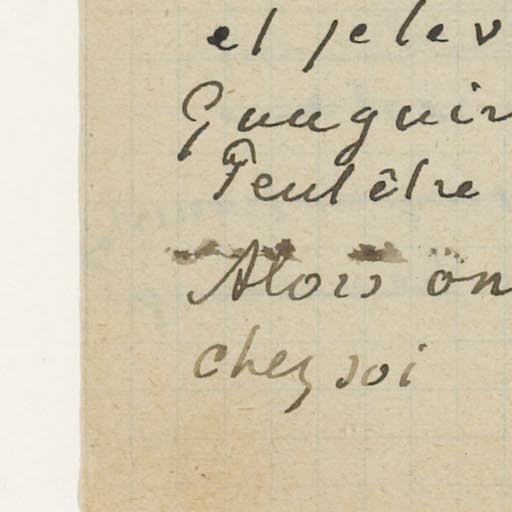 et je le v
Gauguin
Peut être
Alors on
chez soi